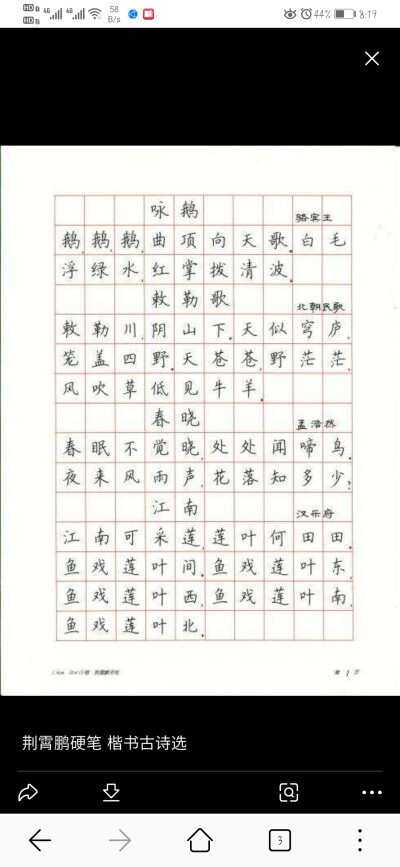 HD 4G 4G 58 B/s 44% 8:19
咏鹅 骆宾王
鹅,鹅,鹅,曲项向天歌。白毛
浮绿水,红掌拨清波。
敕勒歌 北朝民歌
敕勒川,阴山下。天似穹庐,
笼盖四野。天苍苍,野茫茫,
风吹草低见牛羊。
春晓 孟浩然
春眠不觉晓,处处闻啼鸟。
夜来风雨声,花落知多少?
江南 汉乐府
江南可采莲,莲叶何田田。
鱼戏莲叶间。鱼戏莲叶东,
鱼戏莲叶西,鱼戏莲叶南,
鱼戏莲叶北。
第 1 页
荆霄鹏硬笔 楷书古诗选
3